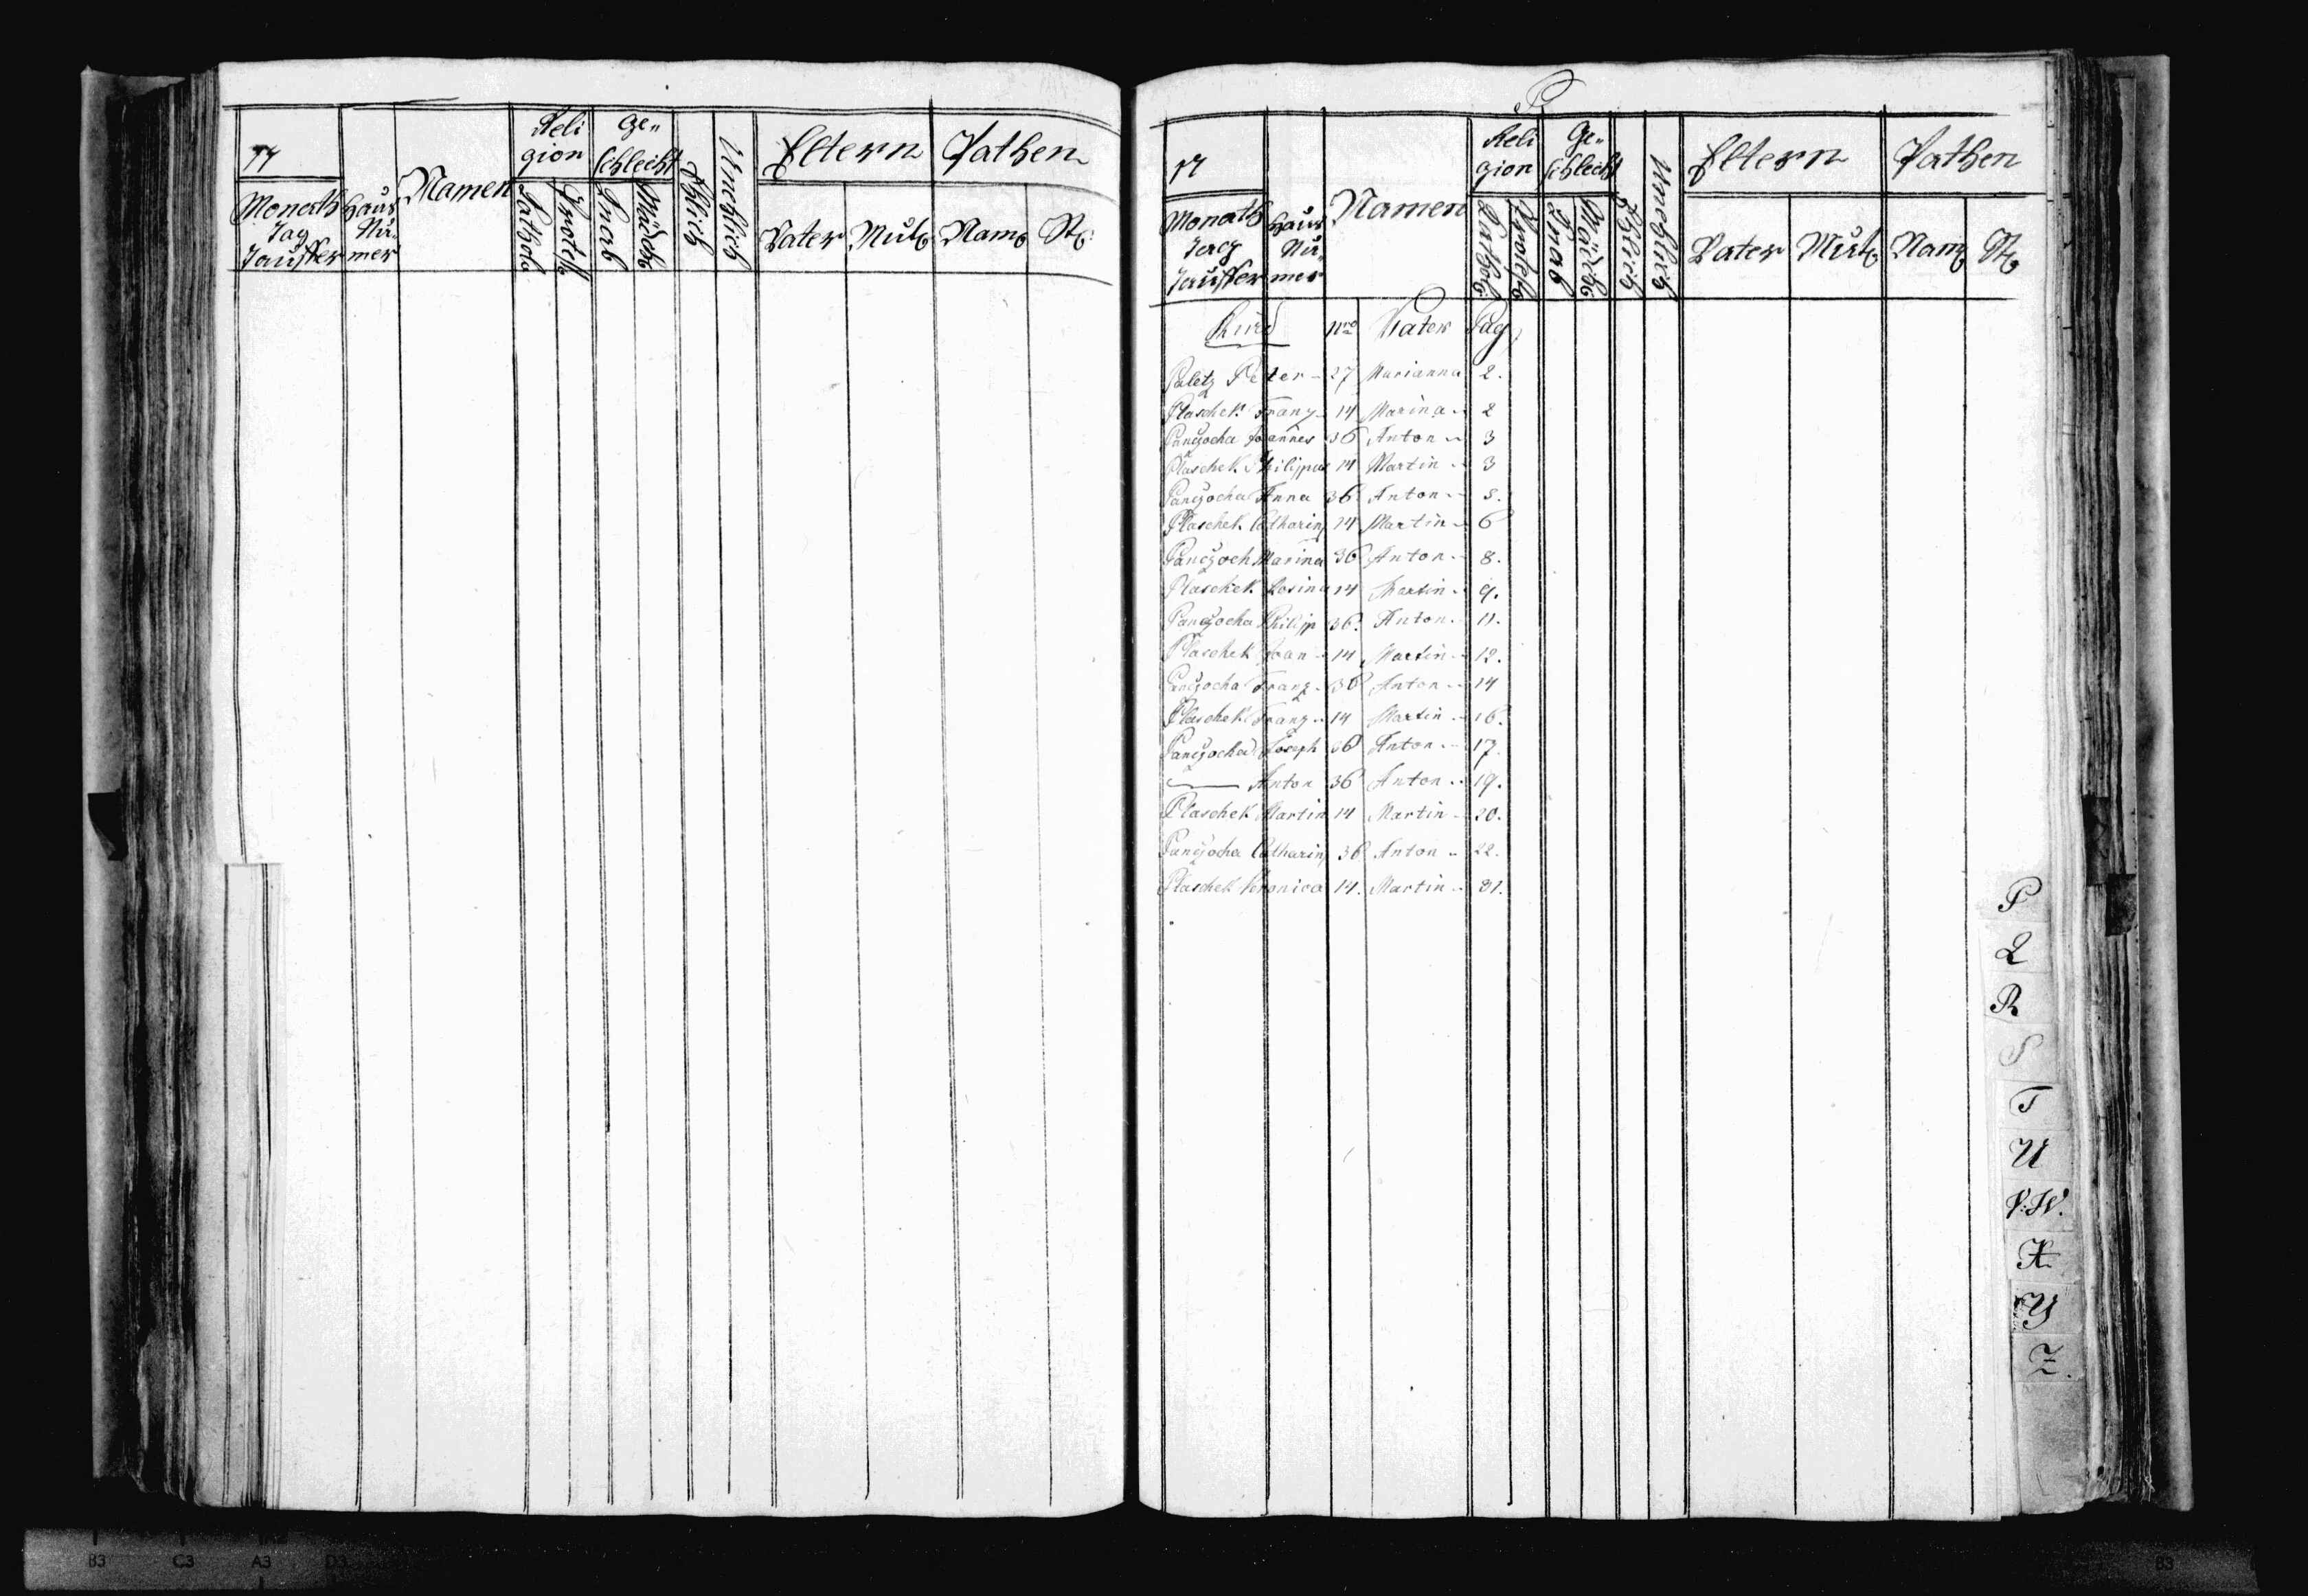 17
Monath Tag Tauffer
Haus Nu- mer
Namen
Reli gion
Cathol:
Protest:
Ge- schlecht
Knab
Mädch:
Ehlich
Unehlich
Eltern
Vater
Mutt:
Pathen
Nam:
St:
P
17
Monath Tag Tauffer
Haus Nu- mer
Namen
Reli gion
Cathol:
Protest:
Ge- schlecht
Knab
Mädch:
Ehlich
Unehlich
Eltern
Vater
Mutt:
Pathen
Nam:
St:
Kind nro Vater Pag
Paletz Peter - 27 Marianna 2.
Plaschek Franz - 14 Marina - 2
Panczocha Joannes 36 Anton - 3
Plaschek Philippus 14 Martin - 3
Panczocha Anna 36 Anton - 5.
Plaschek Catharin 14 Martin - 6
Panczoch Marina 36 Anton - 8.
Plaschek Rosina 14 Martin - 9.
Panczocha Philipp 36. Anton - 11.
Plaschek Joan - 14 Martin - 12.
Panczocha Franz - 36 Anton - 14
Plaschek Franz - 14 Martin - 16.
Panczocha Joseph 36 Anton - 17.
— Anton 36 Anton - 19.
Plaschek Martin 14 Martin - 20.
Panczocha Catharin 36 Anton - 22.
Plaschek Veronica 14. Martin - 81.
P
Q
R
S
T
U
V.W.
X
Y
Z.
B3 C3 A3 D3
B3